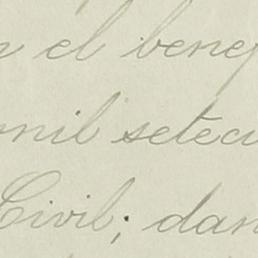 el benef
mil seteci
Civil; dan